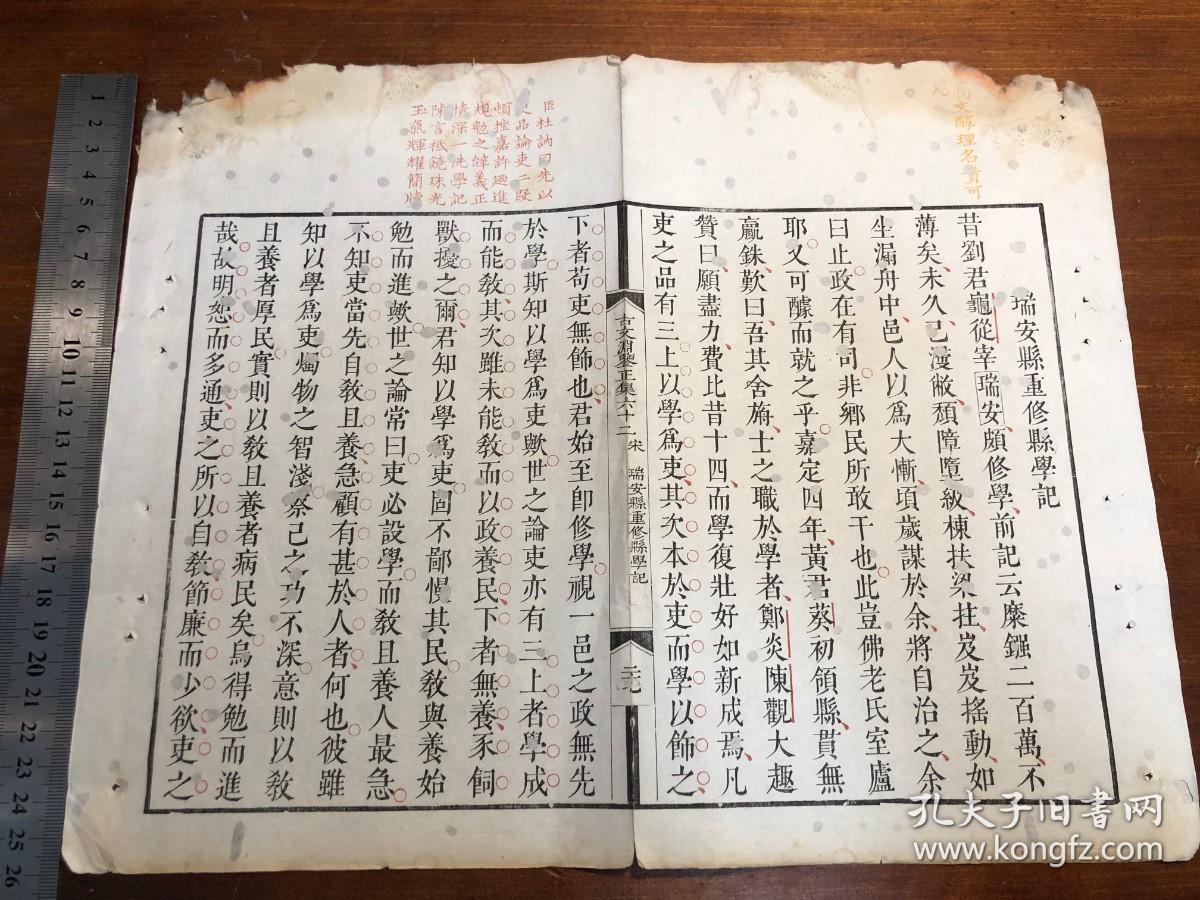 瑞安縣重修縣學記
昔劉君龜從宰瑞安頗修學前記云糜鏹二百萬不
薄矣未久已漫敝頹障墮級棟扶梁拄岌岌搖動如
坐漏舟中邑人以爲大慚頃歲謀於余將自治之余
曰止政在有司非鄉民所敢干也此豈佛老氏室廬
耶又可醵而就之乎嘉定四年黃君葵初領縣貫無
羸銖歎曰吾其舍旃士之職於學者鄭炎陳觀大趣
贊曰願盡力費比昔十四而學復壯好如新成焉凡
吏之品有三上以學爲吏其次本於吏而學以飾之
古文淵鑒正集六十二 宋 瑞安縣重修縣學記
下者苟吏無飾也君始至卽修學視一邑之政無先
於學斯知以學爲吏歟世之論吏亦有三上者學成
而能敎其次雖未能敎而以政養民下者無養豕飼
獸擾之爾君知以學爲吏固不鄙慢其民敎與養始
勉而進歟世之論常曰吏必設學而敎且養人最急
不知吏當先自敎且養急顧有甚於人者何也彼雖
知以學爲吏燭物之智淺祭己之功不深意則以敎
且養者厚民實則以敎且養者病民矣烏得勉而進
哉故明恕而多通吏之所以自敎節廉而少欲吏之
文醇理名言可
臣杜訥曰先以
品論吏二段
頓挫嘉許廻進
規勉之辭義正
情深一洗學記
陳言祗饒珠光
玉氣輝耀簡牘
1
2
3
4
5
6
7
8
9
10
11
12
13
14
15
16
17
18
19
20
21
22
23
24
25
26
孔夫子旧书网
www.kongfz.com